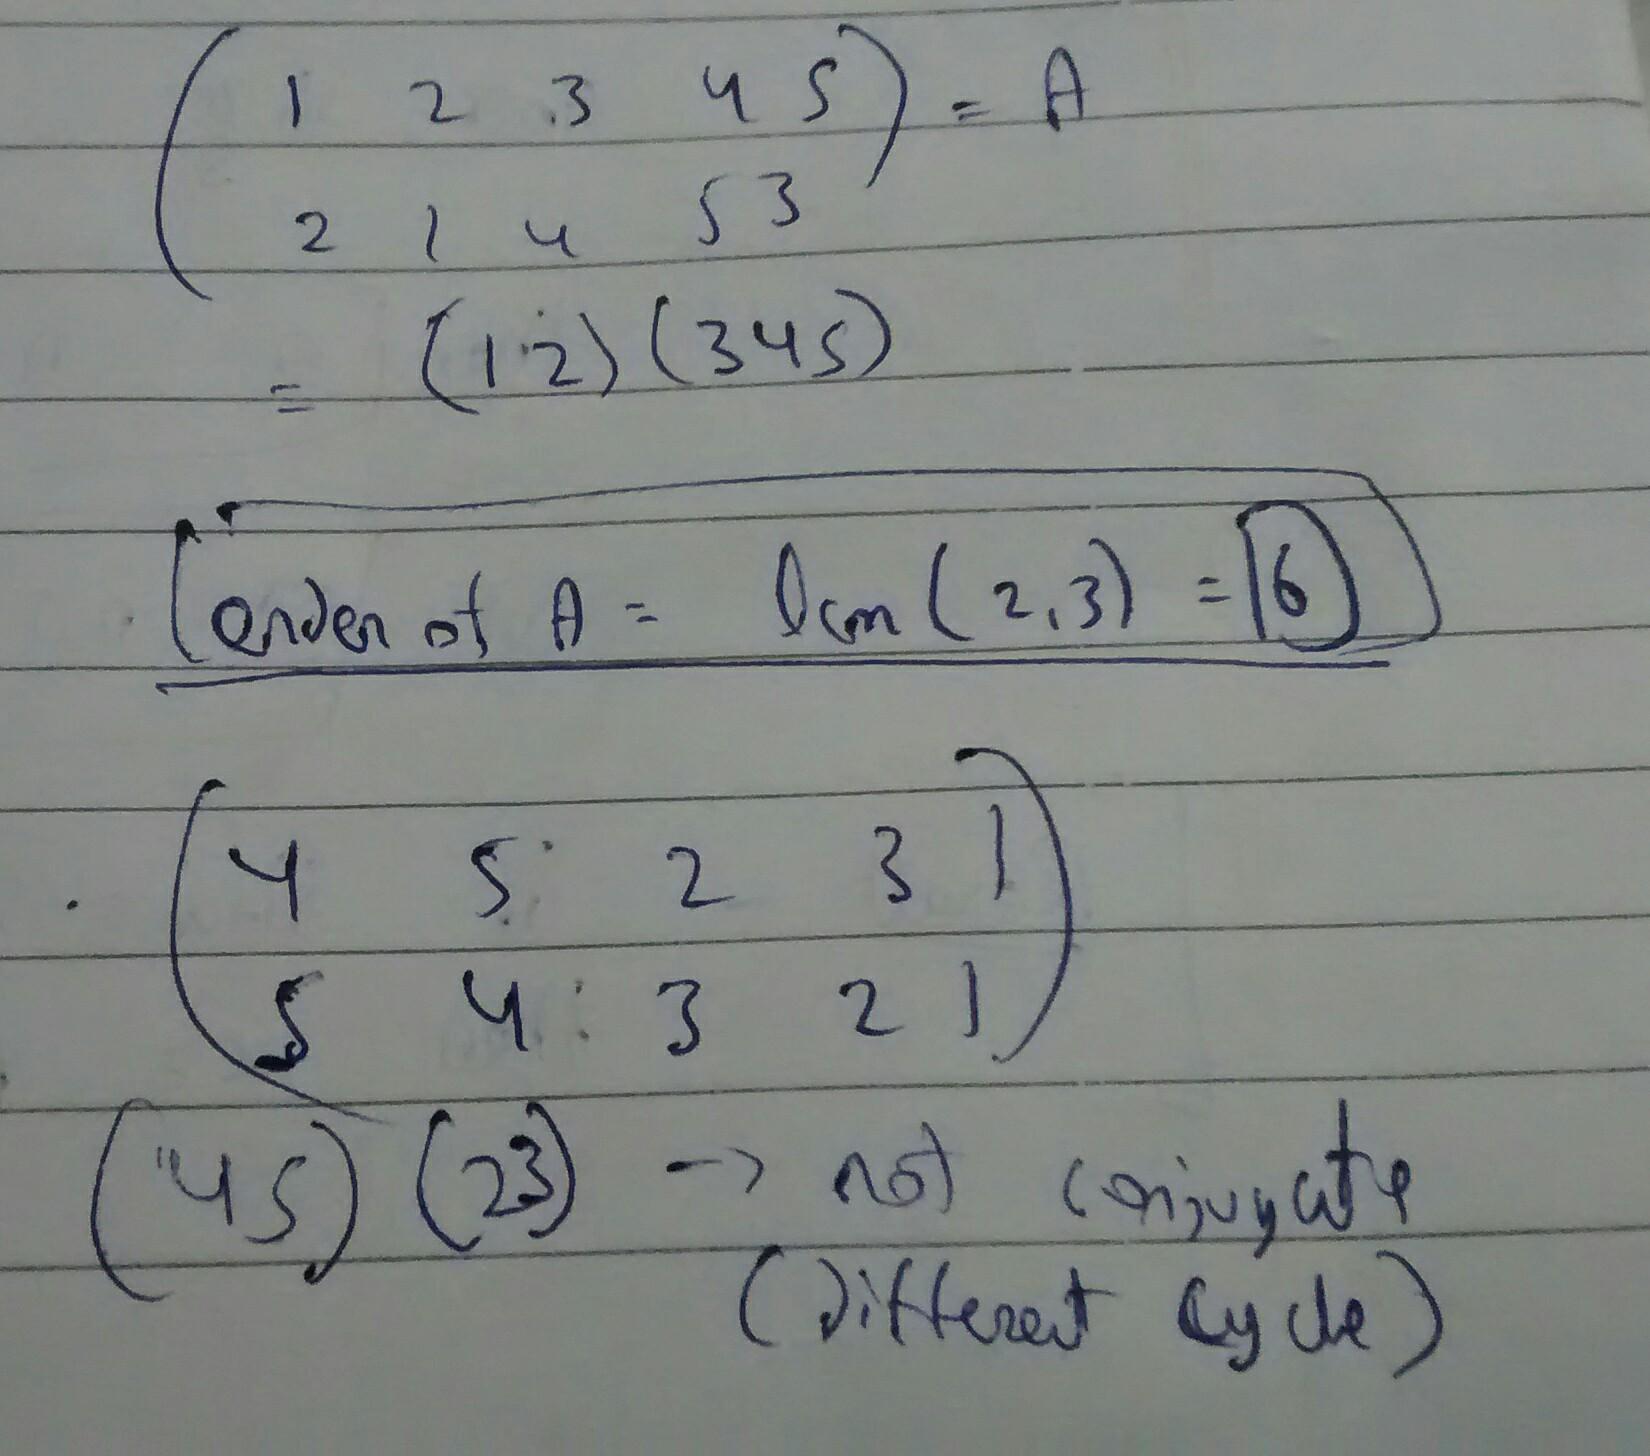 ( 1 2 3 4 5 ) = A
2 1 4 5 3
= (1 2) (3 4 5)
order of A = lcm (2,3) = 6
( 4 5 2 3 1 )
5 4 3 2 1
(4 5) (2 3) -> not conjugate
(Different cycle)